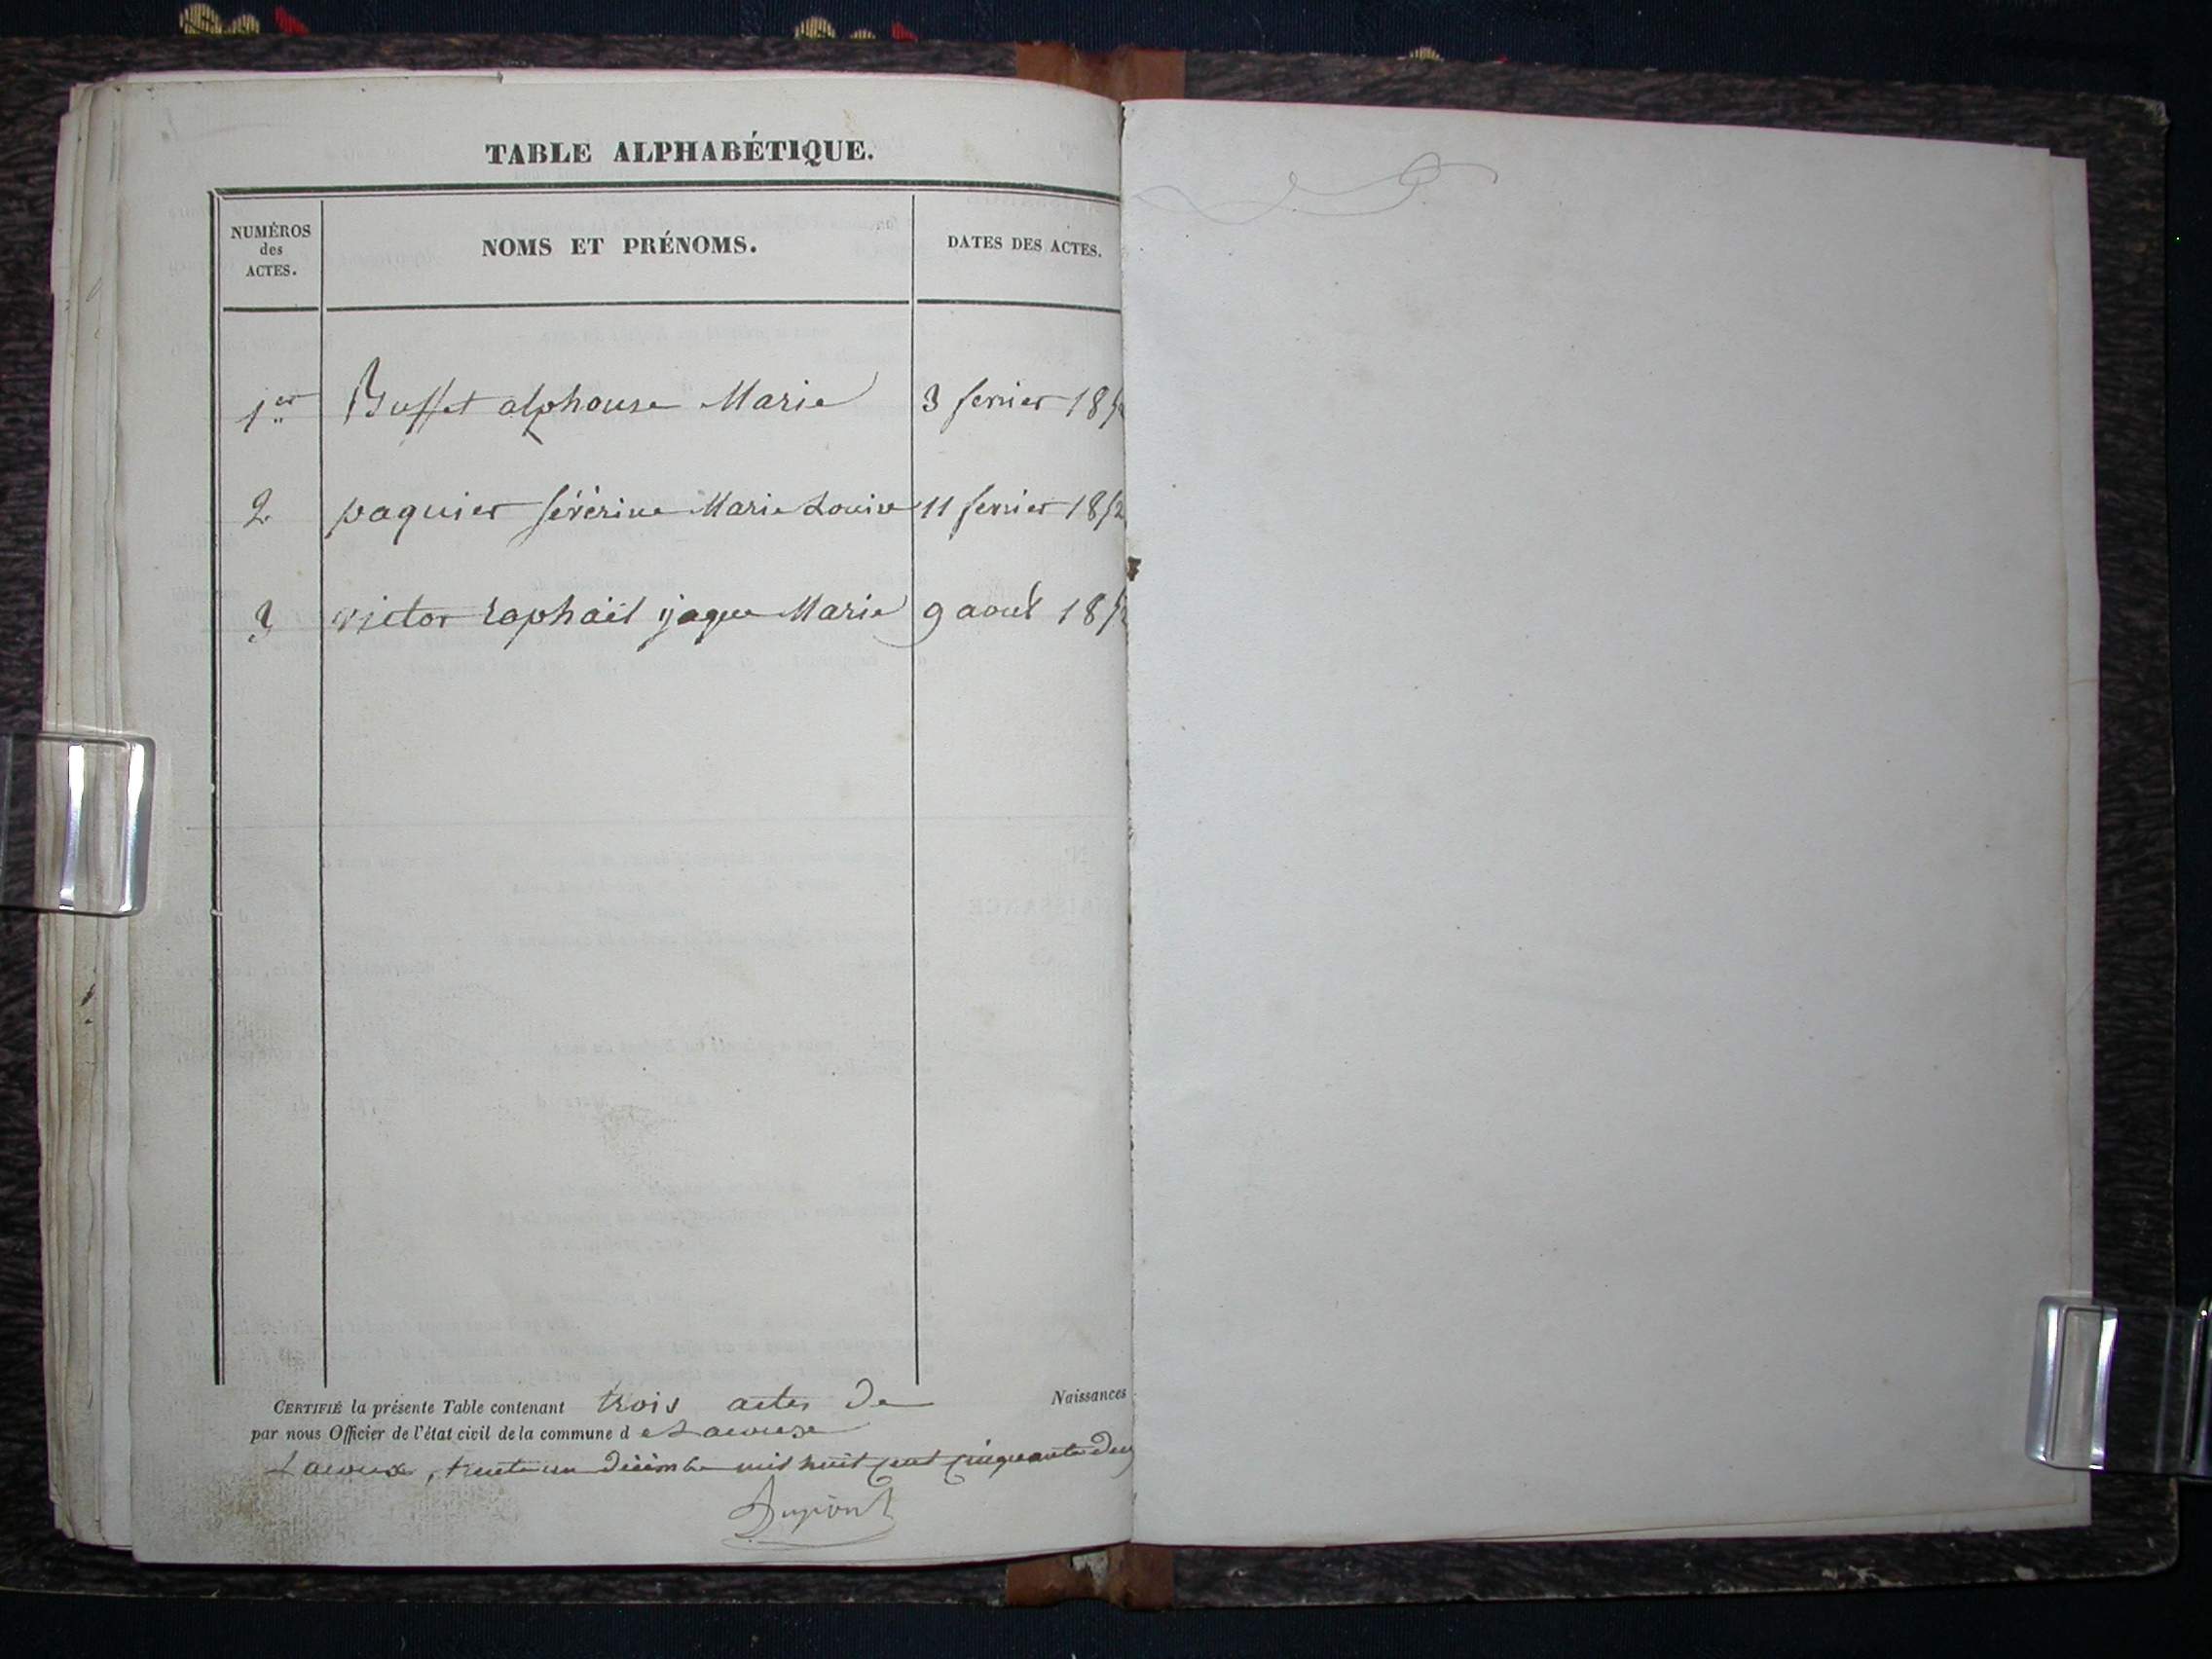 TABLE ALPHABÉTIQUE.
NUMÉROS des ACTES.
NOMS ET PRÉNOMS.
DATES DES ACTES.
1er Buffet alphonse Marie 3 fevrier 1852
2 paquier sévérine Marie Louise 11 fevrier 1852
3 victor raphaël jaque Marie 9 aout 1852
CERTIFIÉ la présente Table contenant trois actes de Naissances
par nous Officier de l'état civil de la commune d e Lacoux
Lacoux, trente un décembre mil huit cent cinquante deux
Dupont